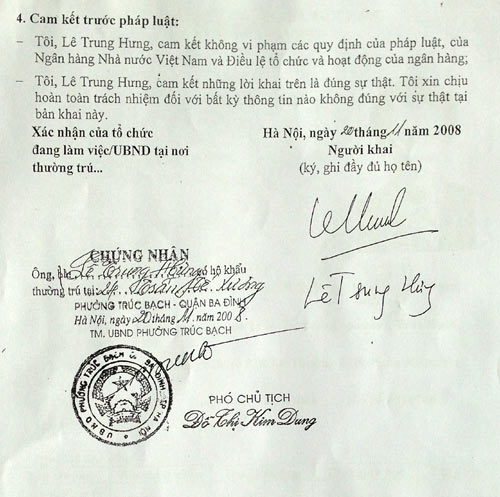 4. Cam kết trước pháp luật:
– Tôi, Lê Trung Hưng, cam kết không vi phạm các quy định của pháp luật, của
Ngân hàng Nhà nước Việt Nam và Điều lệ tổ chức và hoạt động của ngân hàng;
– Tôi, Lê Trung Hưng, cam kết những lời khai trên là đúng sự thật. Tôi xin chịu
hoàn toàn trách nhiệm đối với bất kỳ thông tin nào không đúng với sự thật tại
bản khai này.
Xác nhận của tổ chức
đang làm việc/UBND tại nơi
thường trú...
Hà Nội, ngày 20 tháng 11 năm 2008
Người khai
(ký, ghi đầy đủ họ tên)
Lê Trung Hưng
CHỨNG NHẬN
Ông, bà: Lê Trung Hưng có hộ khẩu
thường trú tại:
PHƯỜNG TRÚC BẠCH - QUẬN BA ĐÌNH
Hà Nội, ngày 20 tháng 11 năm 2008.
TM. UBND PHƯỜNG TRÚC BẠCH
UBND PHƯỜNG TRÚC BẠCH Q. BA ĐÌNH TP HÀ NỘI
PHÓ CHỦ TỊCH
Đỗ Thị Kim Dung